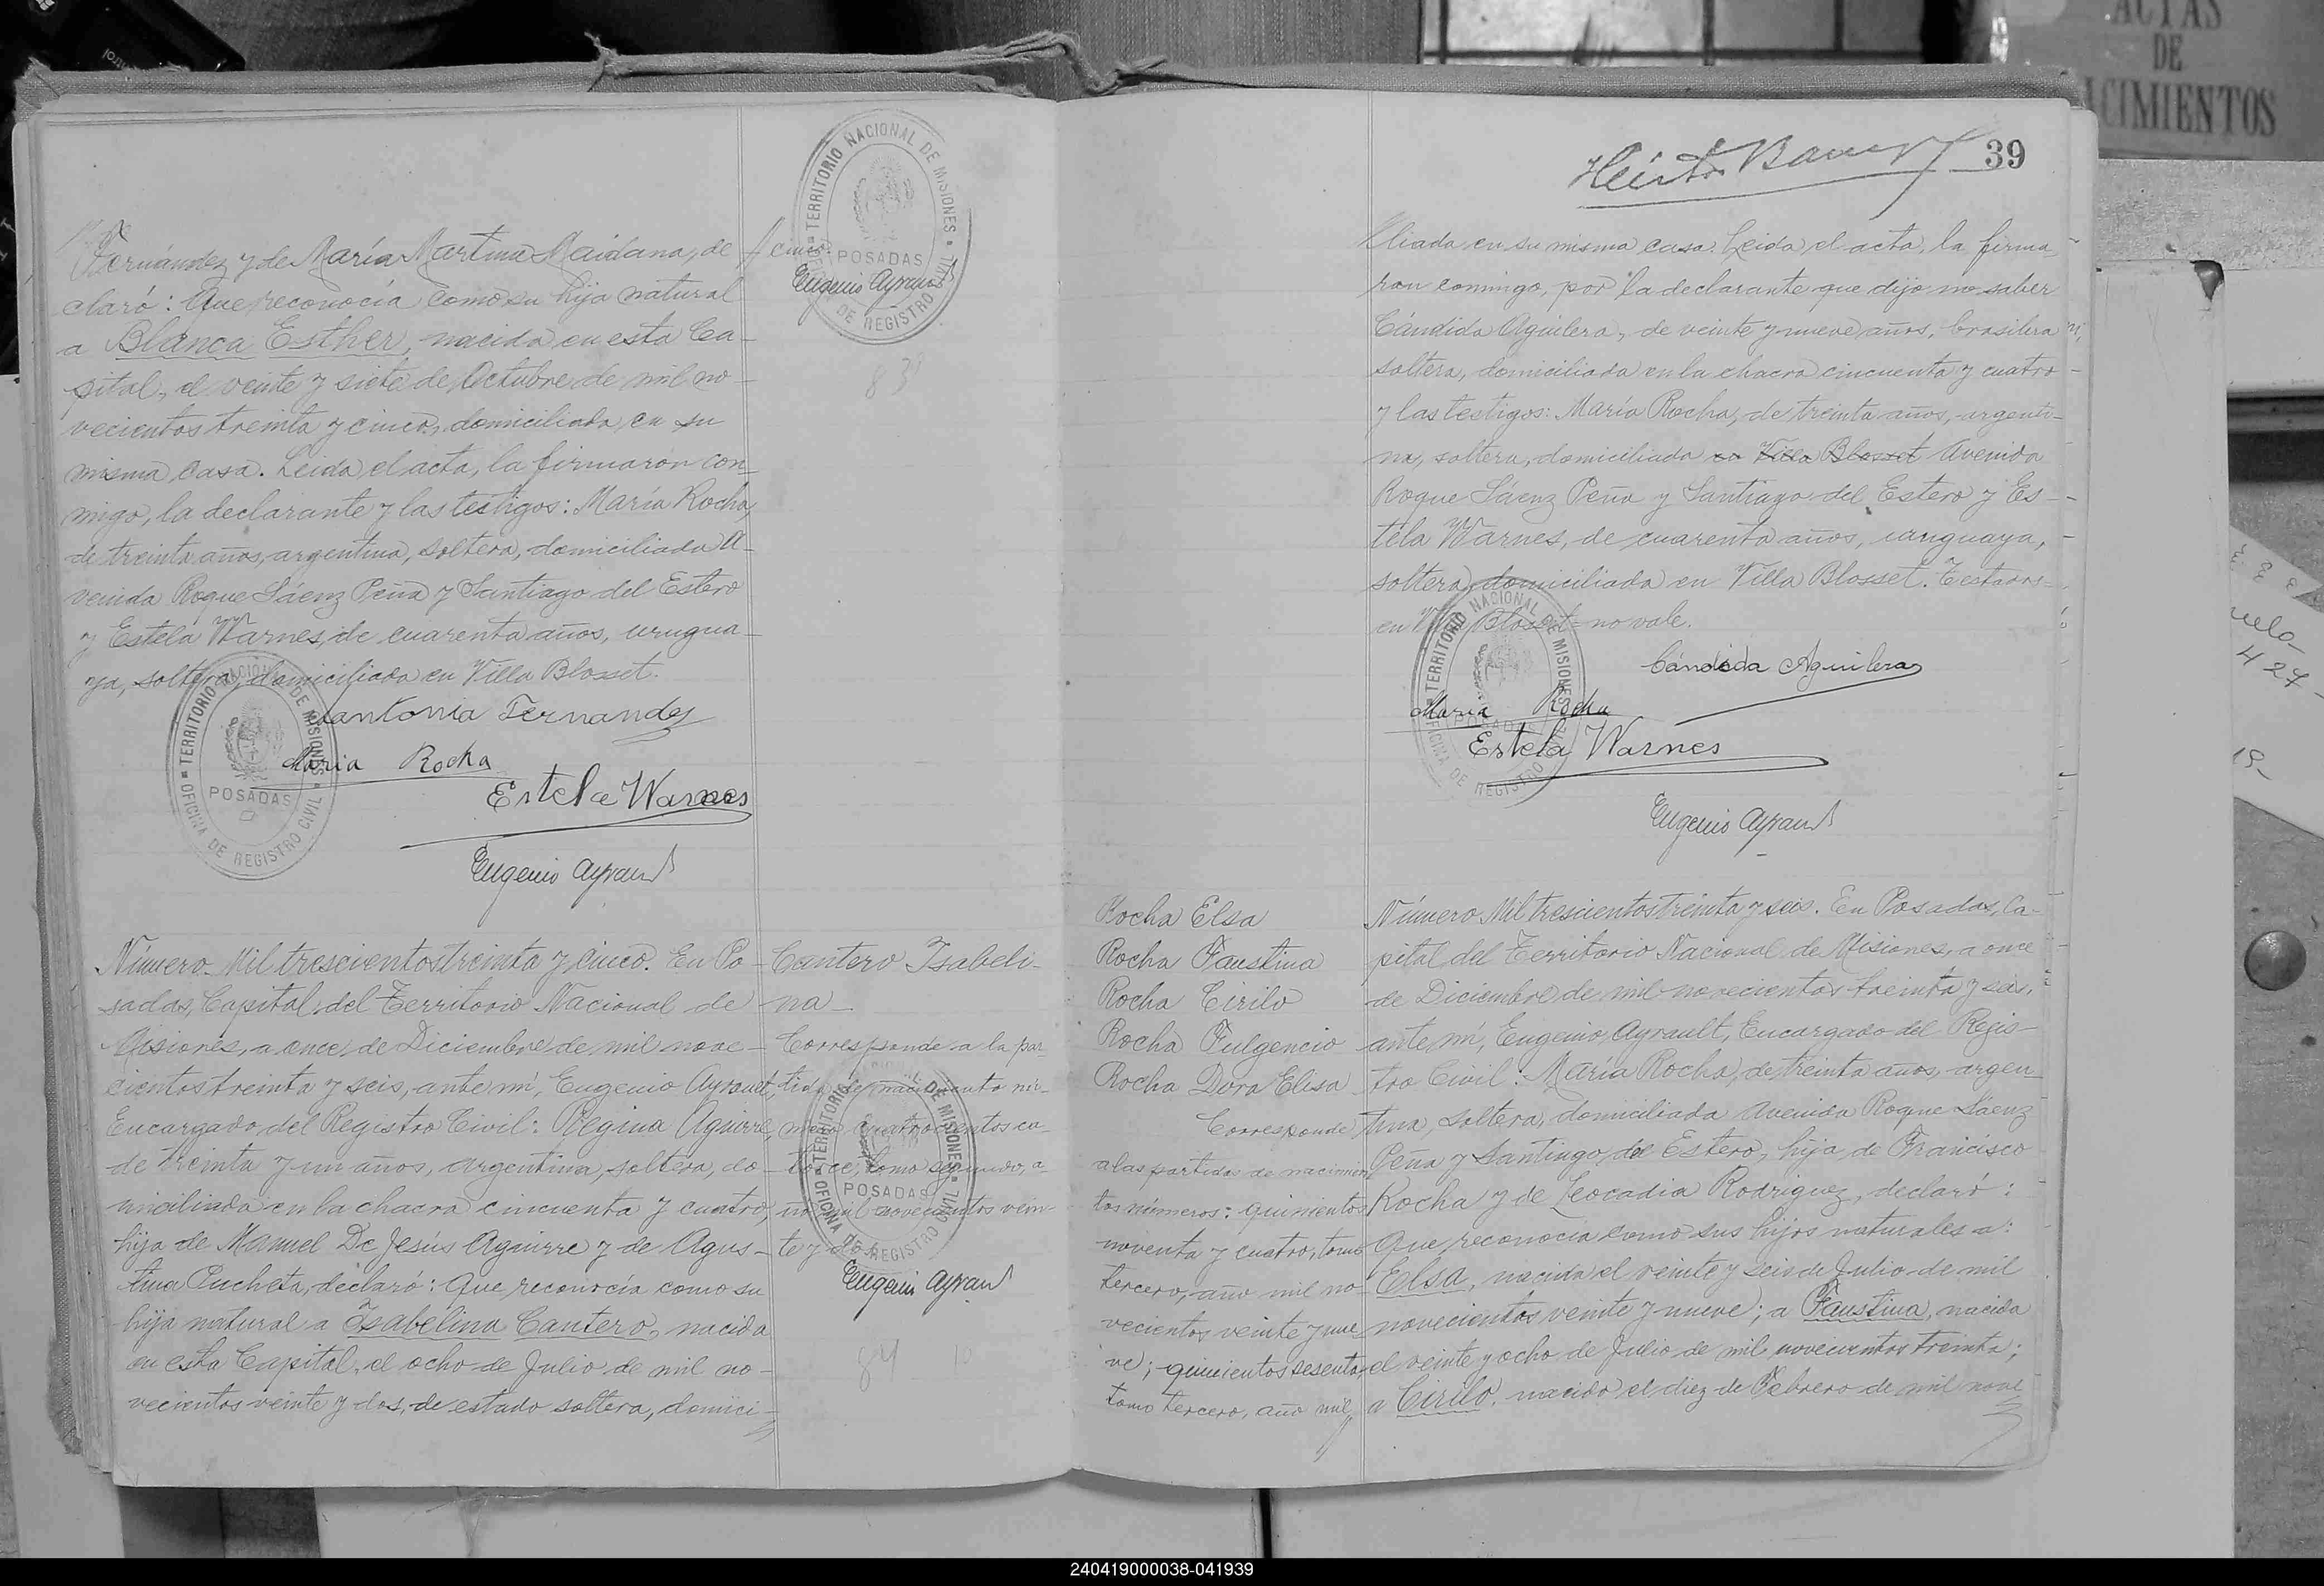 Fernández y de María Martina Maidana, de
claró: Que reconocía como su hija natural
a Blanca Esther, nacida en esta Ca-
pital, el veinte y siete de Octubre de mil no-
vecientos treinta y cinco, domiciliada en su
misma casa. Leida el acta, la firmaron con-
migo, la declarante y las testigos: María Rocha,
de treinta años, argentina, soltera, domiciliada A-
venida Roque Sáenz Peña y Santiago del Estero
y Estela Warnes, de cuarenta años, urugua-
ya, soltera, domiciliada en Villa Blosset.
Antonia Fernandes
Maria Rocha
Estela Warnes
Eugenio Ayrault
TERRITORIO NACIONAL DE MISIONES
POSADAS
OFICINA DE REGISTRO CIVIL
cinco.
Eugenio Ayrault
TERRITORIO NACIONAL DE MISIONES
POSADAS
OFICINA DE REGISTRO CIVIL
83
Número Mil trescientos treinta y cinco. En Po-
sadas, Capital del Territorio Nacional de
Misiones, a once de Diciembre de mil nove-
cientos treinta y seis, ante mí, Eugenio Ayrault,
Encargado del Registro Civil: Regina Aguirre,
de treinta y un años, argentina, soltera, do-
miciliada en la chacra cincuenta y cuatro,
hija de Manuel De Jesús Aguirre y de Agus-
tina Pucheta, declaró: Que reconocía como su
hija natural a Isabelina Cantero, nacida
en esta Capital, el ocho de Julio de mil no-
vecientos veinte y dos, de estado soltera, domici-
Cantero Isabeli-
na
Corresponde a la par-
tida de nacimiento nú-
mero cuatrocientos ca-
torce, tomo segundo, a-
ño mil novecientos vein-
te y dos.
Eugenio Ayrault
TERRITORIO NACIONAL DE MISIONES
POSADAS
OFICINA DE REGISTRO CIVIL
84
39
liada en su misma casa. Leida el acta, la firma-
ron conmigo, por la declarante que dijo no saber
Cándida Aguilera, de veinte y nueve años, brasilera
soltera, domiciliada en la chacra cincuenta y cuatro
y las testigos: María Rocha, de treinta años, argenti-
na, soltera, domiciliada en Villa Blosset Avenida
Roque Sáenz Peña y Santiago del Estero y Es-
tela Warnes, de cuarenta años, uruguaya,
soltera, domiciliada en Villa Blosset. Testados=
en Villa Blosset= no vale.
Cándida Aguilera
Maria Rocha
Estela Warnes
Eugenio Ayrault
TERRITORIO NACIONAL DE MISIONES
POSADAS
OFICINA DE REGISTRO CIVIL
Rocha Elsa
Rocha Faustina
Rocha Cirilo
Rocha Fulgencio
Rocha Dora Elisa
Corresponde
a las partidas de nacimien
tos números: quinientos
noventa y cuatro, tomo
tercero, año mil no-
vecientos veinte y nue
ve; quinientos sesenta,
tomo tercero, año mil
Número Mil trescientos treinta y seis. En Posadas, Ca-
pital del Territorio Nacional de Misiones, a once
de Diciembre de mil novecientos treinta y seis,
ante mí, Eugenio Ayrault, Encargado del Regis-
tro Civil: María Rocha, de treinta años, argen-
tina, soltera, domiciliada Avenida Roque Sáenz
Peña y Santiago del Estero, hija de Francisco
Rocha y de Leocadia Rodriguez, declaró:
Que reconocía como sus hijos naturales a:
Elsa, nacida el veinte y seis de Julio de mil
novecientos veinte y nueve; a Faustina, nacida
el veinte y ocho de Julio de mil novecientos treinta;
a Cirilo, nacido el diez de Febrero de mil nove
ACTAS
DE
CIMIENTOS
427
19-
240419000038-041939